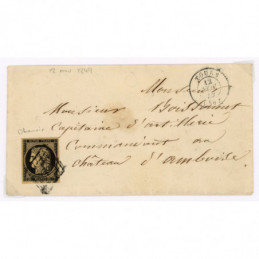 12 mai 1849
TOURS
12
Monsieur
Monsieur Boissonnet
Capitaine d'artillerie
Commandant au
château d'amboise